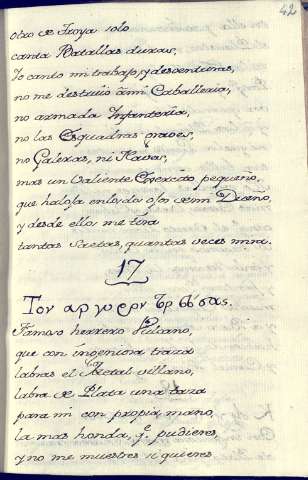 42
otro de Troya solo
canta Batallas duras,
Yo canto mi trabajo, y desventuras,
no me destruiò à mi Caballeria,
no armada Infanteria,
no las Esquadras graves,
no Galeras, ni Naves,
mas un valiente Exercito pequeño,
que haloja en los dos ojos de mi Dueño,
y desde ellos me tira
tantas saetas, quantas veces mira.
17
Τον αργυρον
Famoso herrero Vulcano,
que con ingeniosa traza
labras el Metal villano,
labra de Plata una taza
para mi con propia mano,
la mas honda, q.e pudieres,
y no me muestres si quieres